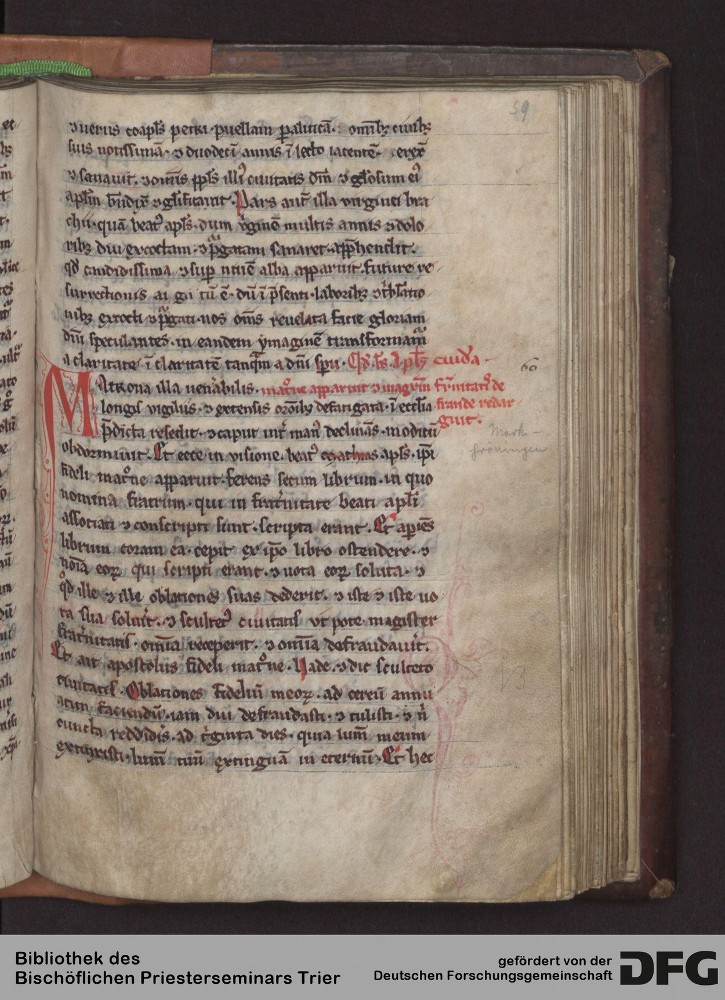 59
⁊ uerus coapl̄s petri puellam paliticā. omībꝫ ciuibꝫ
suis notissimā. ⁊ duodecī annis ī lecto iacentē. erex̄
⁊ sanauit. ⁊ omnis ppl̄s illiꝰ ciuitatis dm̄ ⁊ gl̄osum eiꝰ
apl̄m bn̄dix̄ ⁊ gl̄ificauit. Pars aut̄ illa virginei bra
chii. quā beatꝰ apl̄s. dum v̓ginē multis annis ⁊ dolo
ribꝫ diu excoctam. ⁊ purgatam sanaret. app̄hendit.
qd̄ candidissima ⁊ sup̄ niuē alba apparuit. future re
surrectionis
nibꝫ excocti ⁊ p̄gati. nos om̄s reuelata facie gloriam
dn̄i speculantes. in eandem ymaginē transformam̄
a claritate ī claritatē tanqm̄ a dn̄i spū. cuidā
60
MAtrona illa uen̄abilis. mat̓ne apparuit ⁊ magr̄m fr̄nitatꝭ de
longis vigiliis. ⁊ extensis orōnibꝫ defatigata. ī ecclīa fraude redar
p̄dicta resedit. ⁊ caput int̓ manꝰ declināns. modicū guit.
obdormiuit. Et ecce in visione. beatꝰ mathias apl̄s. ip̄i
fideli mat̓ne apparuit. ferens secum librum. in quo
nomina fratrum. qui in frat̓nitate beati apl̄i
associati ⁊ conscripti sunt. scripta erant. Et apiēs
librum coram ea. cepit ex ip̄o libro ostendere. ⁊
nōīa eoꝝ qui scripti erant. ⁊ uota eoꝝ soluta. ⁊
qd̄ ille ⁊ ille oblationes suas dederit. ⁊ iste ⁊ iste uo
ta sua soluit̓. ⁊ scultetꝰ ciuitatis vt pote magister
frat̓nitatis. om̄ia receperit. ⁊ om̄ia defraudauit̓.
Et ait apostolus fideli mat̓ne. Uade. ⁊ dic sculteto
ciuitatis. Oblationes fideliū meoꝝ. ad cereū annu
atim faciendū. iam diu defraudasti. ⁊ tulisti. ⁊ n̄
cuncta reddidis̓. ad t̓ginta dies. quia lum̄ meum
extinxisti. lum̄ tuū extinguā in eternū. Et hec
Bibliothek des
Bischöflichen Priesterseminars Trier
gefördert von der
Deutschen Forschungsgemeinschaft
DFG